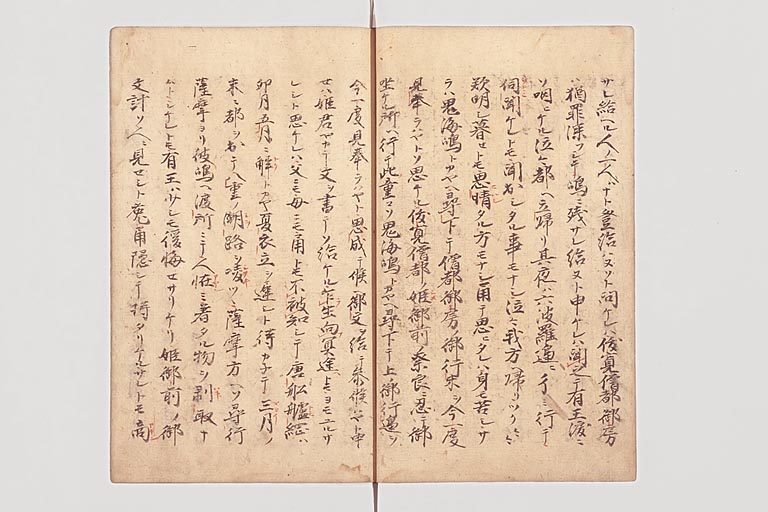 サレ給ヘル人一人ハナト登給ハヌソト問ケレハ俊寛僧都御房
ハ猶罪深シトテ嶋ニ残サレ給ヌト申ケレハ聞之テ有王涙ニ
ソ咽ヒケル泣々都ヘ立帰リ其夜ハ六波羅辺ニ行テ
伺聞ケレトモ聞出シタル事モナシ泣々我方ヘ帰リツヽ
歎明シ暮セトモ思晴タル方モナシ角テ思ニタヘ身モ苦シサ
ラハ鬼海嶋トカヤヘ尋下テ僧都御房ノ御行末ヲ今一度
見奉ラハヤトソ思ケル俊寛僧都ノ姫御前奈良ニ忍テ御
坐ケル所ヘ行テ此童コソ鬼海嶋トカヤヘ尋下テ上御行邊ヲ
今一度見奉ラハヤト思成テ候ヘ御文ヲ給テ参候ハヤト申
セハ姫君ヤカテ文ヲ書テソ給ケル乍生向冥途トモヨモユルサ
レシト思ケレハ父ニモ母ニモ角トモ不被知シテ唐船艫綱ハ
卯月五月ニ解トカヤ夏衣立ヲ遅シト待カネテ三月ノ
末ニ都ヲ出テ八重ノ潮路ヲ凌ツヽ薩摩方ヘソ尋行
薩摩ヨリ彼嶋ヘ渡所ニテ人怪ミ著タル物ヲ剥取ナ
ムトシケレトモ有王ハ少シモ後悔セサリケリ姫御前ノ御
文計ソ人ニ見セシト 隠シテ持タリケルサレトモ商